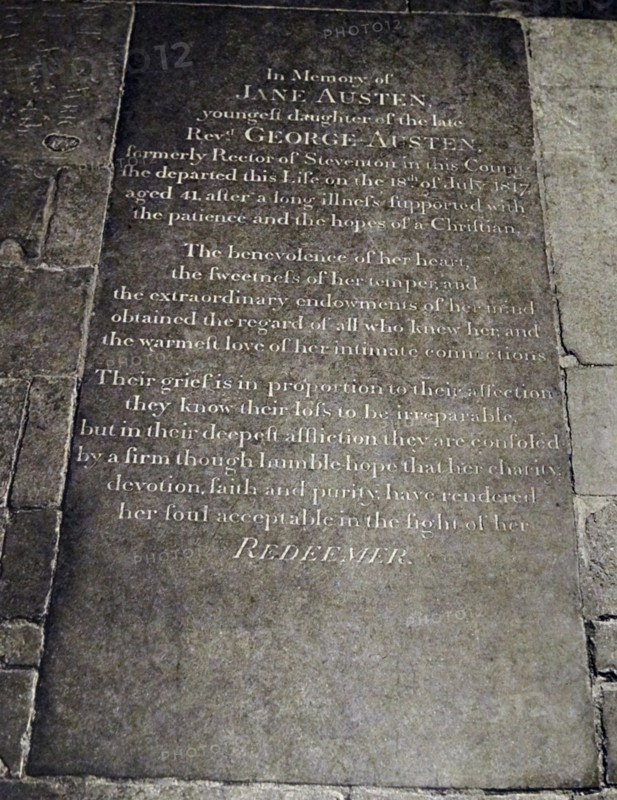 In Memory of
JANE AUSTEN,
youngeſt daughter of the late
Revᵈ GEORGE AUSTEN,
formerly Rector of Steventon in this County
ſhe departed this Life on the 18ᵗʰ of July 1817,
aged 41, after a long illneſs ſupported with
the patience and the hopes of a Chriſtian.
The benevolence of her heart,
the ſweetneſs of her temper, and
the extraordinary endowments of her mind
obtained the regard of all who knew her, and
the warmeſt love of her intimate connections
Their grief is in proportion to their affection
they know their loſs to be irreparable,
but in their deepeſt affliction they are conſoled
by a firm though humble hope that her charity,
devotion, faith and purity, have rendered
her ſoul acceptable in the ſight of her
REDEEMER.
PHOTO12
PHOTO12
PHOTO12
PHOTO12
PHOTO12
PHOTO12